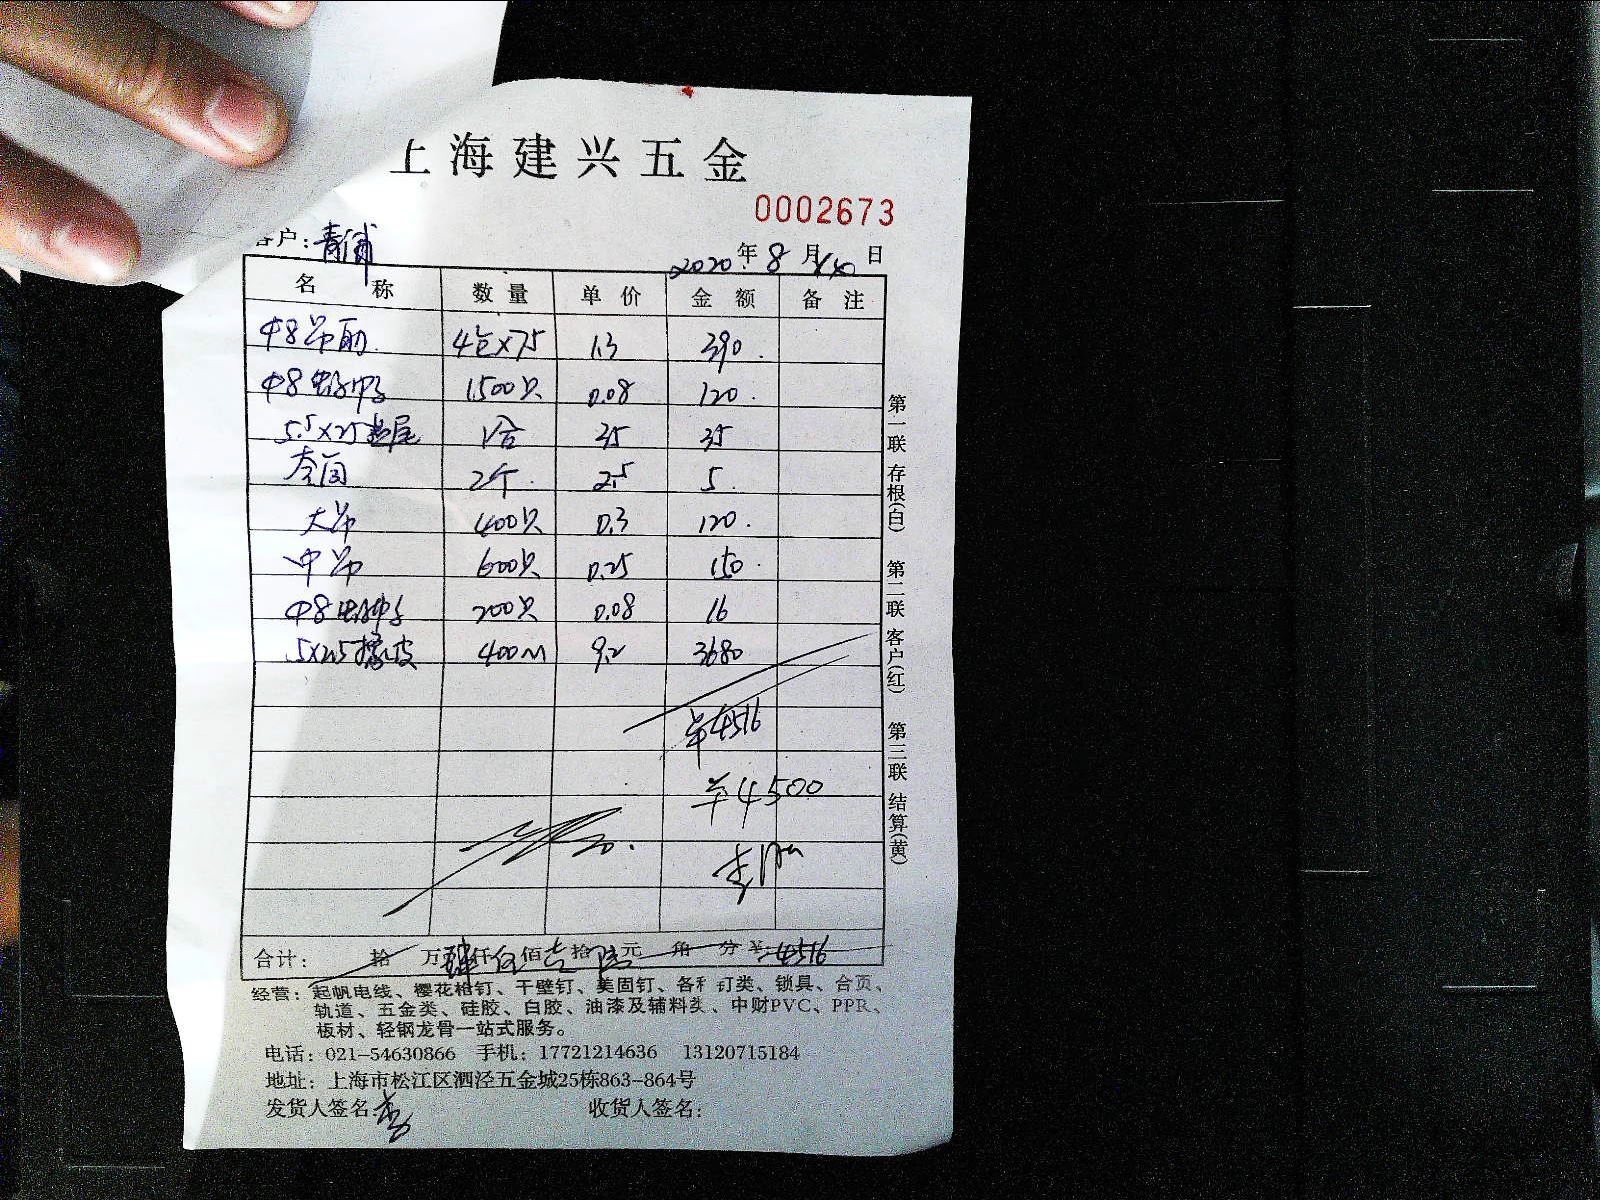 上海建兴五金
0002673
客户:青浦
2020年8月10日
名称 数量 单价 金额 备注
Φ8吊筋 4包×75 1.3 390.
Φ8 1500只 0.08 120.
5.5×25 尾 1合 35 35
2个 2.5 5.
大吊 400只 0.3 120.
中吊 600只 0.25 150.
Φ8 200只 0.08 16
橡皮 400m 9.2 3680
¥4516
¥4500
合计: 拾 万肆仟伍佰壹拾陆元 角 分¥:4516
经营:起帆电线、樱花枪钉、干壁钉、美固钉、各种钉类、锁具、合页、
轨道、五金类、硅胶、白胶、油漆及辅料类、中财PVC、PPR、
板材、轻钢龙骨一站式服务。
电话:021-54630866 手机:17721214636 13120715184
地址:上海市松江区泗泾五金城25栋863-864号
发货人签名: 收货人签名:
第一联 存根(白) 第二联 客户(红) 第三联 结算(黄)